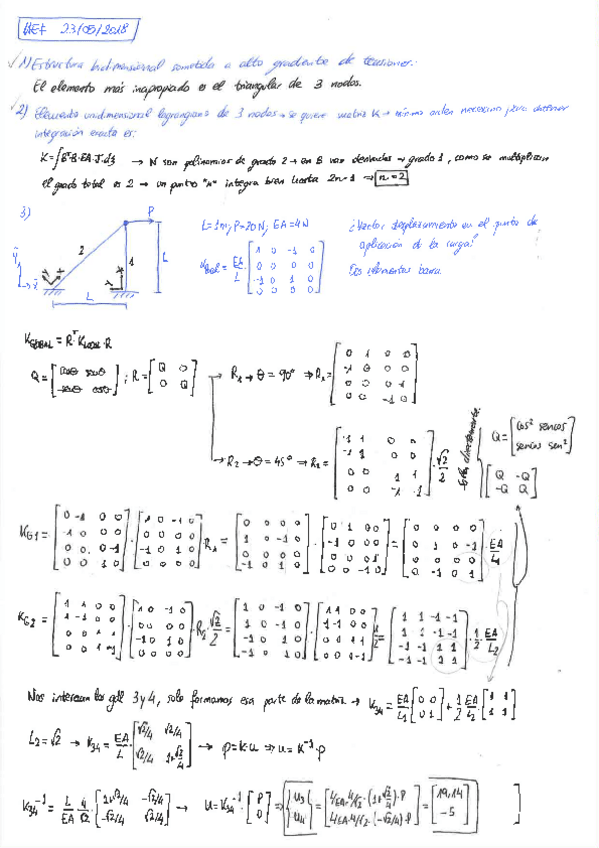 MEF 23/05/2018
1) Estructura bidimensional sometida a alto gradiente de tensiones:
El elemento más inapropiado es el triangular de 3 nodos.
2) Elemento unidimensional lagrangiano de 3 nodos → se quiere matriz K → mínimo orden necesario para obtener
integración exacta es:
K = ∫BᵀB·EA·J·dξ → N son polinomios de grado 2 → en B van derivadas → grado 1, como se multiplican
el grado total es 2 → un punto "n" integra bien hasta 2n-1 ⇒ n=2
3)
P
L=1m; P=20N; EA=4N
¿Vector desplazamiento en el punto de
aplicación de la carga?
Dos elementos barra.
2
1
L
L
EA/L
[1 0 -1 0
0 0 0 0
-1 0 1 0
0 0 0 0]
K_GLOBAL = Rᵀ K_LOCAL·R
Q = [cosθ senθ
-senθ cosθ]; R = [Q 0
0 Q]
→ R₁ → θ = 90° ⇒ R₁ = [0 1 0 0
-1 0 0 0
0 0 0 1
0 0 -1 0]
→ R₂ → θ = 45° ⇒ R₂ = [1 1 0 0
-1 1 0 0
0 0 1 1
0 0 -1 1]·√2/2
directamente.
Q = [cos² sencos
sencos sen²]
[Q -Q
-Q Q]
K_G1 = [0 -1 0 0
1 0 0 0
0 0 0 -1
0 0 1 0]·[1 0 -1 0
0 0 0 0
-1 0 1 0
0 0 0 0] R₁ = [0 0 0 0
1 0 -1 0
0 0 0 0
-1 0 1 0]·[0 1 0 0
-1 0 0 0
0 0 0 1
0 0 -1 0] = [0 0 0 0
0 1 0 -1
0 0 0 0
0 -1 0 1]·EA/L₁
K_G2 = [1 -1 0 0
1 1 0 0
0 0 1 -1
0 0 1 1]·[1 0 -1 0
0 0 0 0
-1 0 1 0
0 0 0 0]·R₂·√2/2 = [1 0 -1 0
1 0 -1 0
-1 0 1 0
-1 0 1 0]·[1 1 0 0
-1 1 0 0
0 0 1 1
0 0 -1 1]·1/2 = [1 1 -1 -1
1 1 -1 -1
-1 -1 1 1
-1 -1 1 1]·1/2·EA/L₂
Nos interesan los gdl 3 y 4, solo formamos esa parte de la matriz → K₃₄ = EA/L₁[0 0
0 1] + 1/2 EA/L₂·[1 1
1 1]
L₂ = √2 → K₃₄ = EA/L·[√2/4 √2/4
√2/4 1+√2/4] → p = K·u ⇒ u = K⁻¹·p
K₃₄⁻¹ = L/EA 4/√2·[1+√2/4 -√2/4
-√2/4 √2/4] → u = K₃₄⁻¹·[P
0] ⇒ {u₃
u₄} = [L/EA·4/√2·(1+√2/4)·P
L/EA·4/√2·(-√2/4)·P] = [19,14
-5]